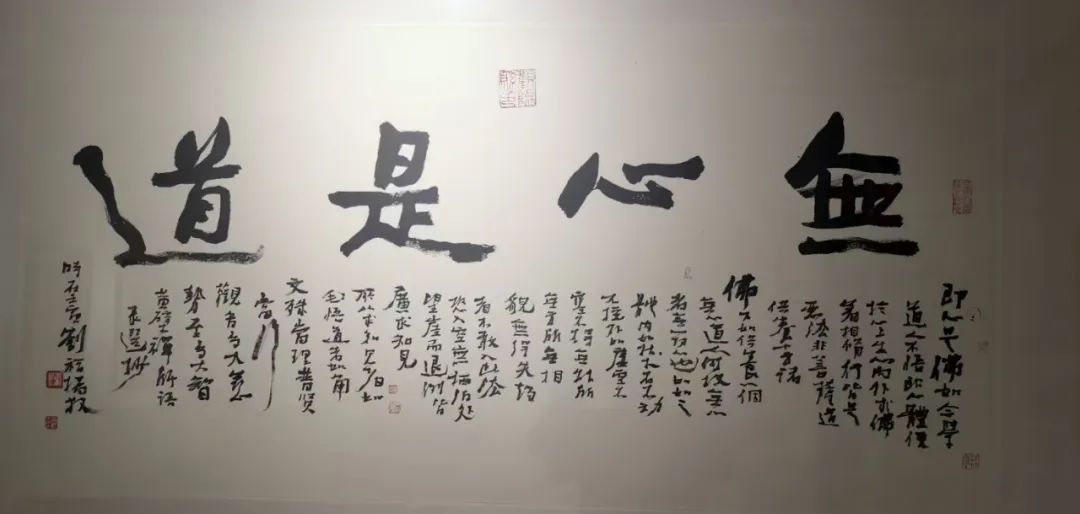 無心是道
即心是佛如今學
道人不悟即心體便
於心上生心向外求佛
著相修行皆是
惡法非菩薩道
供養十方諸
佛不如供養一個
無心道人何故無心
者無一切心也如如之
體內如木石不動
不搖外如虛空不
塞不碍無能所
無方所無相
貌無得失趨
者不敢入此法
空無栖泊處
望崖而退例皆
廣求知見
所以求知見者如
毛悟道者如角
文殊當理普賢
當行
觀音當大慈
勢至當大智
黃檗禪師語
選抄
時在 劉